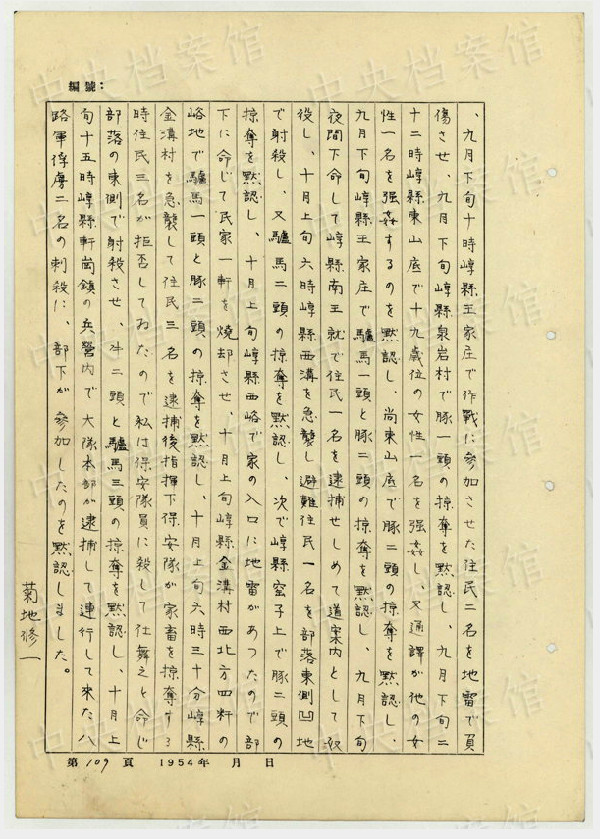 編號：
、九月下旬十時崞縣王家庄で作戰に参加させた住民二名を地雷で負
傷させ、九月下旬崞縣泉岩村で豚一頭の掠奪を黙認し、九月下旬二
十二時崞縣東山底で十九歳位の女性一名を强姦し、又通譯が他の女
性一名を强姦するのを黙認し、尚東山底で豚二頭の掠奪を黙認し、
九月下旬崞縣王家庄で驢馬一頭と豚二頭の掠奪を黙認し、九月下旬
夜間下命して崞縣南王就で住民一名を逮捕せしめて道案内として奴
役し、十月上旬六時崞縣西溝を急襲し避難住民一名を部落東側凹地
で射殺し、又驢馬二頭の掠奪を黙認し、次で崞縣窑子上で豚二頭の
掠奪を黙認し、十月上旬崞縣西峪で家の入口に地雷があつたので部
下に命じて民家一軒を燒却させ、十月上旬崞縣金溝村西北方四粁の
峪地で驢馬一頭と豚二頭の掠奪を黙認し、十月上旬六時三十分崞縣
金溝村を急襲して住民三名を逮捕後指揮下保安隊が家畜を掠奪する
時住民三名が拒否してゐたので私は保安隊員に殺して仕舞えと命じ
部落の東側で射殺させ、牛二頭と驢馬三頭の掠奪を黙認し、十月上
旬十五時崞縣軒崗鎮の兵營内で大隊本部が逮捕して連行して来た八
路軍俘虜二名の刺殺に、部下が参加したのを黙認しました。
菊地修一
第109頁 1954年 月 日
中央档案馆